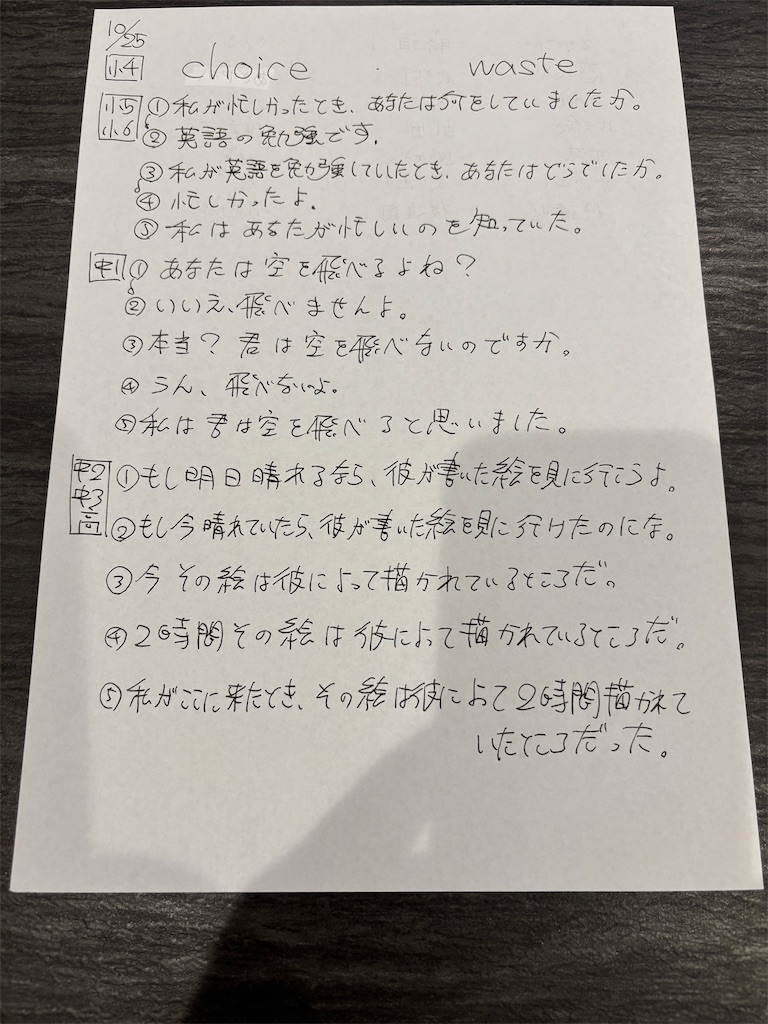 10/25
小4 choice ・ waste
小5 小6 ① 私が忙しかったとき、あなたは何をしていましたか。
② 英語の勉強です.
③ 私が英語を勉強していたとき、あなたはどうでしたか。
④ 忙しかったよ.
⑤ 私は あなたが忙しいのを知っていた。
中1 ① あなたは空を飛べるよね?
② いいえ、飛べませんよ。
③ 本当? 君は空を飛べないのですか。
④ うん、飛べないよ。
⑤ 私は君は空を飛べると思いました。
中2 中3 高 ① もし明日晴れるなら、彼が書いた絵を見に行こうよ。
② もし今晴れていたら、彼が書いた絵を見に行けたのにな。
③ 今その絵は彼によって描かれているところだ。
④ 2時間その絵は彼によって描かれているところだ。
⑤ 私がここに来たとき、その絵は彼によって2時間描かれて
いたところだった。